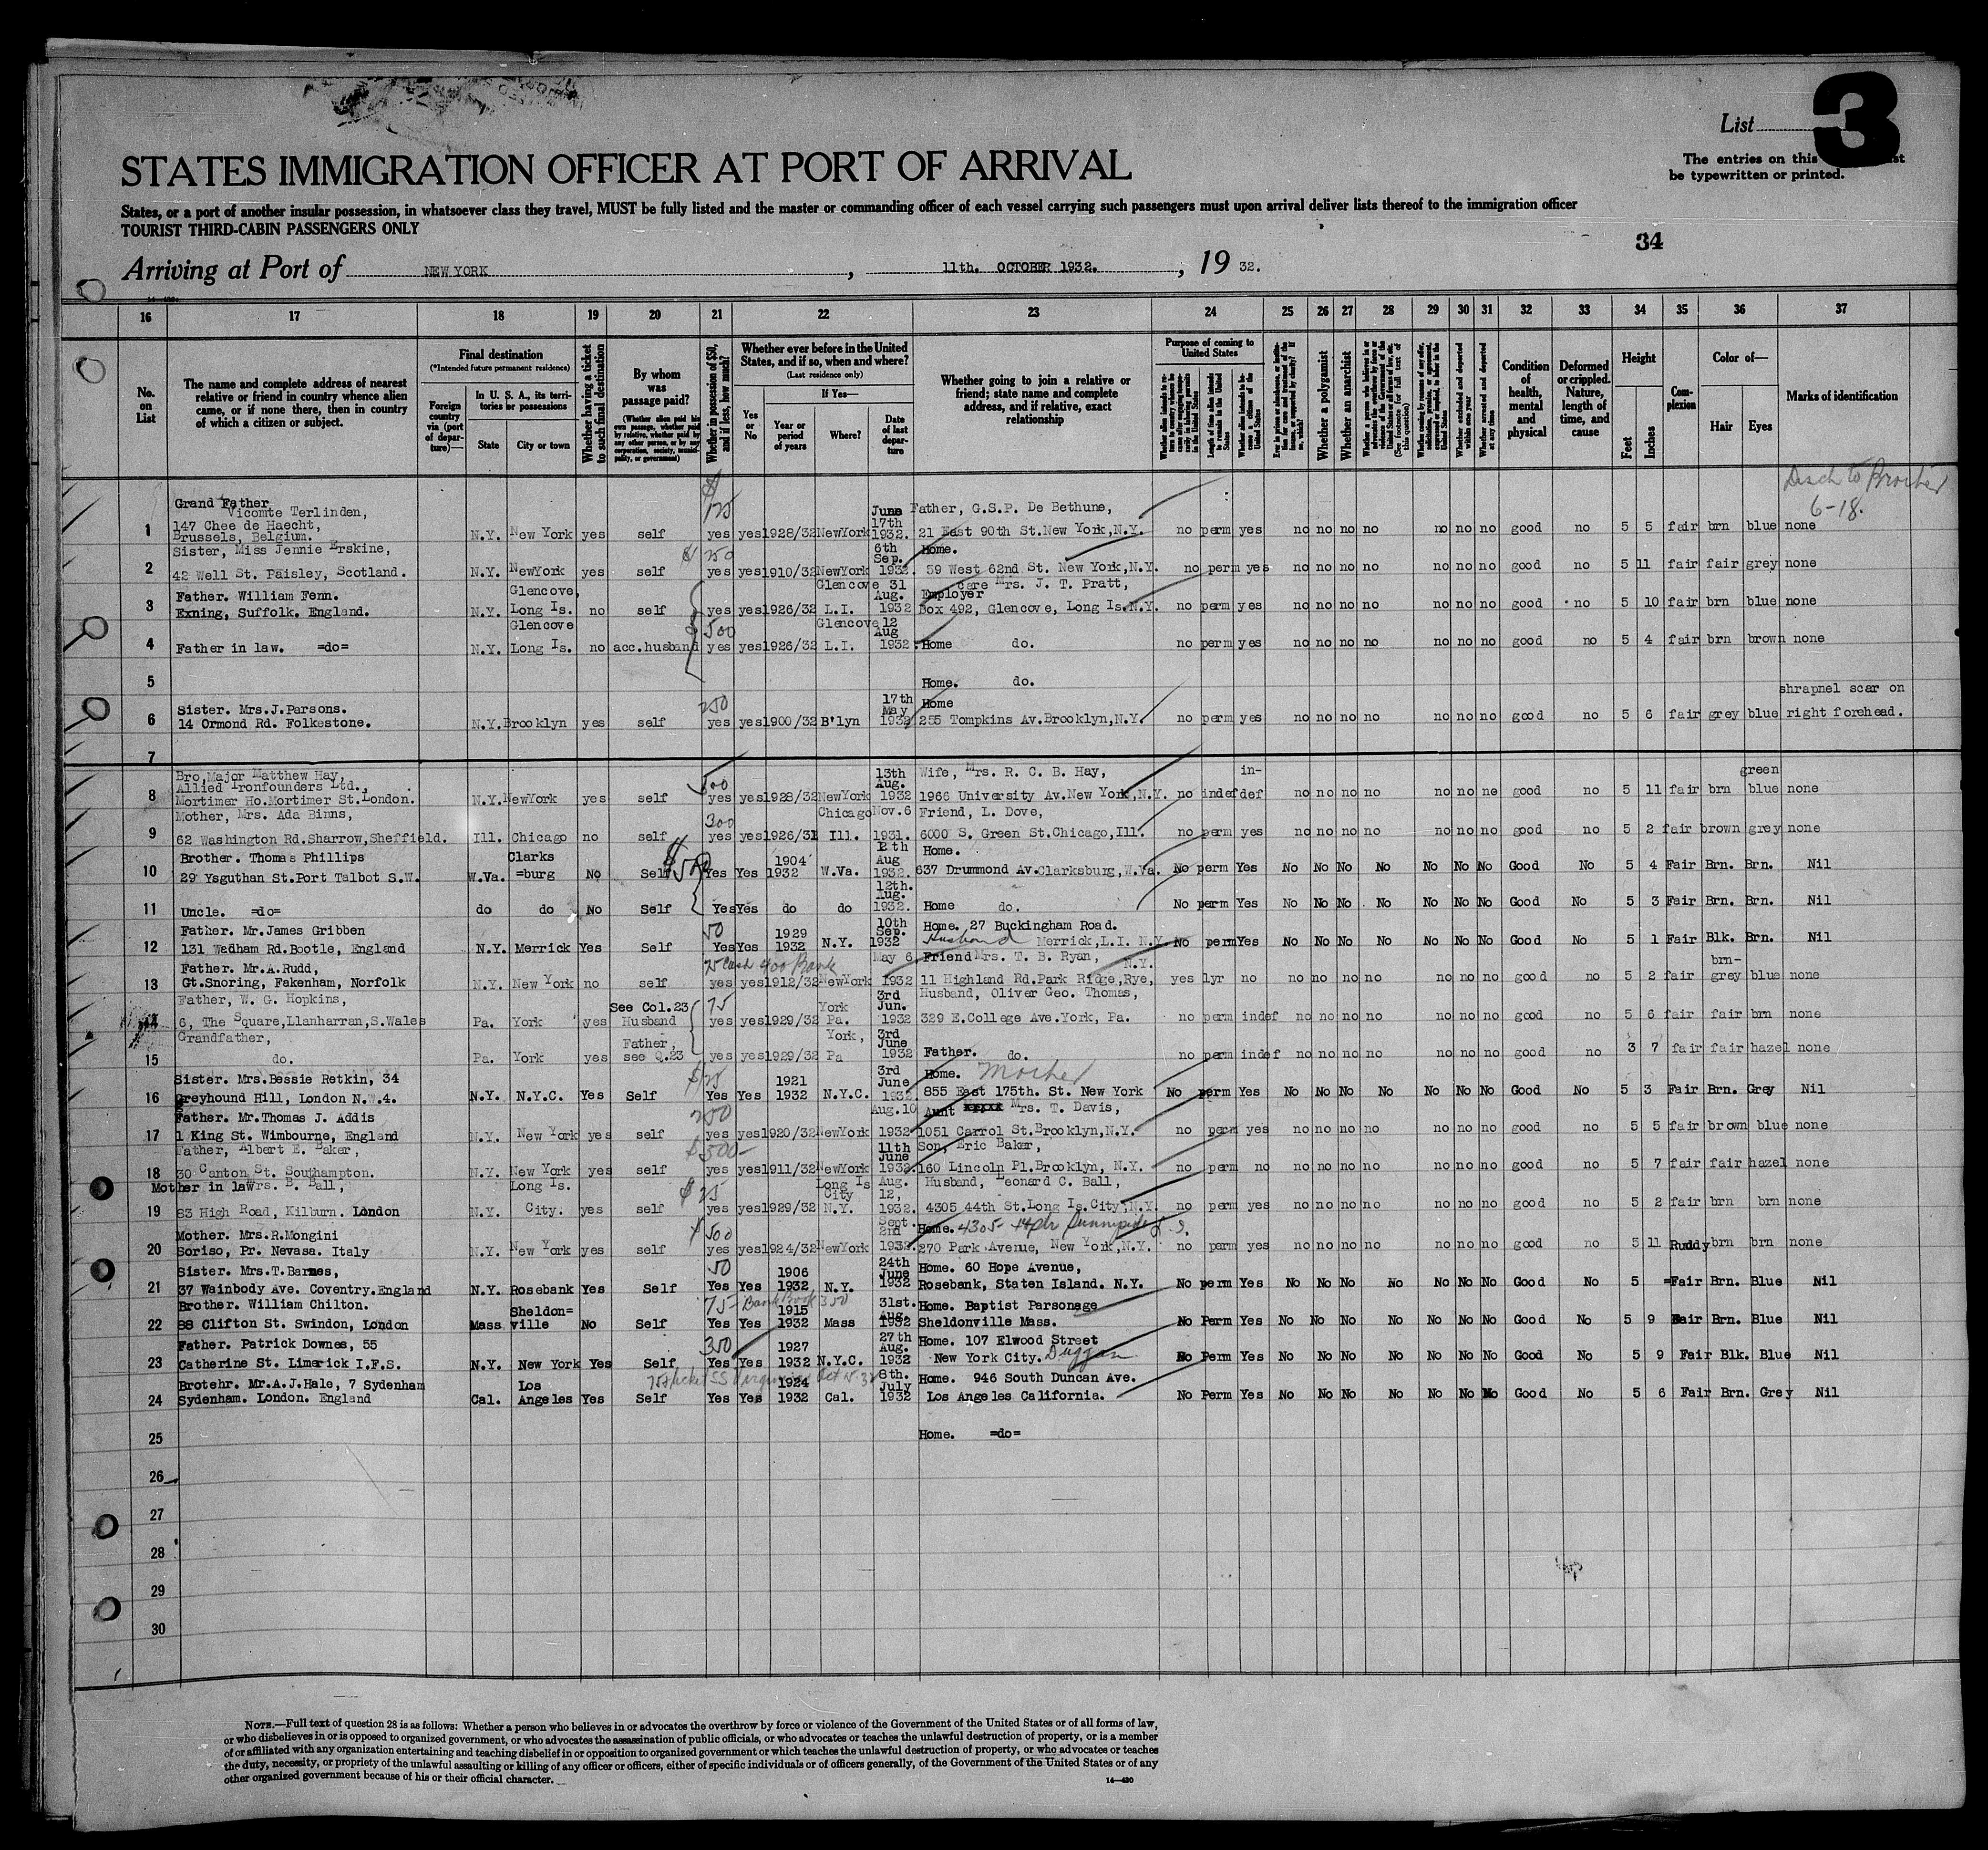 List 3
The entries on this
be typewritten or printed.
STATES IMMIGRATION OFFICER AT PORT OF ARRIVAL
States, or a port of another insular possession, in whatsoever class they travel, MUST be fully listed and the master or commanding officer of each vessel carrying such passengers must upon arrival deliver lists thereof to the immigration officer
TOURIST THIRD-CABIN PASSENGERS ONLY
34
Arriving at Port of NEW YORK, 11th. OCTOBER 1932., 19 32.
16 17 18 19 20 21 22 23 24 25 26 27 28 29 30 31 32 33 34 35 36 37
No. on List
The name and complete address of nearest relative or friend in country whence alien came, or if none there, then in country of which a citizen or subject.
Final destination
(*Intended future permanent residence)
Foreign country via (port of departure)—
In U. S. A., its territories or possessions
State
City or town
Whether having a ticket to such final destination
By whom was passage paid?
(Whether alien paid his own passage, whether paid by relative, whether paid by any other person, or by any corporation, society, municipality, or government)
Whether in possession of $50, and if less, how much?
Whether ever before in the United States, and if so, when and where?
(Last residence only)
Yes or No
If Yes—
Year or period of years
Where?
Date of last departure
Whether going to join a relative or friend; state name and complete address, and if relative, exact relationship
Purpose of coming to United States
Whether a polygamist
Whether an anarchist
Condition of health, mental and physical
Deformed or crippled. Nature, length of time, and cause
Height
Feet
Inches
Complexion
Color of—
Hair
Eyes
Marks of identification
Disch to Brother
6-18.
Grand Father
Vicomte Terlinden, $ 125 June Father, G.S.P. De Bethune,
147 Chee de Haecht, 17th
1 Brussels, Belgium. N.Y. New York yes self yes yes 1928/32 NewYork 1932. 21 East 90th St.New York,N.Y. no perm yes no no no no no no no good no 5 5 fair brn blue none
Sister, Miss Jennie Erskine, $ 250 6th Sep. Home.
2 42 Well St. Paisley, Scotland. N.Y. NewYork yes self yes yes 1910/32 NewYork 1932. 59 West 62nd St. New York,N.Y. no perm yes no no no no no no no good no 5 11 fair fair grey none
Father. William Fenn. Glencove, Glencove 31 Aug. care Mrs. J. T. Pratt, Employer
3 Exning, Suffolk. England. N.Y. Long Is. no self yes yes 1926/32 L.I. 1932 Box 492, Glencove, Long Is.N.Y. no perm yes no no no no no no no good no 5 10 fair brn blue none
Glencove $ 500 Glencove 12 Aug
4 Father in law. =do= N.Y. Long Is. no acc.husband yes yes 1926/32 L.I. 1932. Home do. no perm yes no no no no no no no good no 5 4 fair brn brown none
5 Home. do.
Sister. Mrs.J.Parsons. 250 17th May Home shrapnel scar on
6 14 Ormond Rd. Folkestone. N.Y. Brooklyn yes self yes yes 1900/32 B'lyn 1932 255 Tompkins Av.Brooklyn,N.Y. no perm yes no no no no no no no good no 5 6 fair grey blue right forehead.
7
Bro,Major Matthew Hay, 13th Wife, Mrs. R. C. B. Hay, in- green
Allied Ironfounders Ltd., 500 Aug.
8 Mortimer Ho.Mortimer St.London. N.Y. NewYork yes self yes yes 1928/32 NewYork 1932 1966 University Av.New York,N.Y. no indef def no no no no no no ne good no 5 11 fair brn blue none
Mother, Mrs. Ada Binns, 300 Chicago Nov.6 Friend, L. Dove,
9 62 Washington Rd.Sharrow,Sheffield. Ill. Chicago no self yes yes 1926/31 Ill. 1931. 6000 S. Green St.Chicago,Ill. no perm yes no no no no no no no good no 5 2 fair brown grey none
Brother. Thomas Phillips Clarks $500 1904 12th Aug Home.
10 29 Ysguthan St.Port Talbot S.W. W.Va. =burg No Self Yes Yes 1932 W.Va. 1932. 637 Drummond Av.Clarksburg,W.Va. No perm Yes No No No No No No No Good No 5 4 Fair Brn. Brn. Nil
12th. Aug.
11 Uncle. =do= do do No Self Yes Yes do do 1932. Home do. No perm Yes No No No No No No No Good No 5 3 Fair Brn. Brn. Nil
Father. Mr.James Gribben 50 1929 10th Sep. Home. 27 Buckingham Road.
12 131 Wadham Rd.Bootle, England N.Y. Merrick Yes Self Yes Yes 1932 N.Y. 1932 Husband Merrick,L.I. N.Y. No perm Yes No No No No No No No Good No 5 1 Fair Blk. Brn. Nil
Father. Mr.A.Rudd, 75 Cash 400 Bank May 6 Friend Mrs. T. B. Ryan, N.Y. brn-
13 Gt.Snoring, Fakenham, Norfolk N.Y. New York no self yes yes 1912/32 NewYork 1932 11 Highland Rd.Park Ridge,Rye, yes 1yr no no no no no no no no good no 5 2 fair grey blue none
Father, W. G. Hopkins, See Col.23 75 York 3rd Jun. Husband, Oliver Geo. Thomas,
14 6, The Square,Llanharran,S.Wales Pa. York yes Husband yes yes 1929/32 Pa. 1932 329 E.College Ave.York, Pa. no perm indef no no no no no no no good no 5 6 fair fair brn none
Grandfather, Father, York, 3rd June
15 do. Pa. York yes see Q.23 yes yes 1929/32 Pa 1932 Father. do. no perm indef no no no no no no no good no 3 7 fair fair hazel none
Sister. Mrs.Bessie Retkin, 34 $25 1921 3rd June Home. Mother
16 Greyhound Hill, London N.W.4. N.Y. N.Y.C. Yes Self Yes Yes 1932 N.Y.C. 1932. 855 East 175th. St. New York No perm Yes No No No No No No No Good No 5 3 Fair Brn. Grey Nil
Father. Mr.Thomas J. Addis 250 Aug.10 Aunt Mrs. T. Davis,
17 1 King St. Wimbourne, England N.Y. New York yes self yes yes 1920/32 NewYork 1932 1051 Carrol St.Brooklyn,N.Y. no perm yes no no no no no no no good no 5 5 fair brown blue none
Father, Albert E. Baker, $500- 11th June Son, Eric Baker,
18 30 Canton St. Southampton. N.Y. New York yes self yes yes 1911/32 NewYork 1932. 160 Lincoln Pl.Brooklyn, N.Y. no perm no no no no no no no no good no 5 7 fair fair hazel none
Mother in law Mrs. B. Ball, Long Is. $ 25 Long Is City Aug. 12, Husband, Leonard C. Ball,
19 83 High Road, Kilburn. London N.Y. City. yes self yes yes 1929/32 N.Y. 1932. 4305 44th St.Long Is.City,N.Y. no perm yes no no no no no no no good no 5 2 fair brn brn none
Mother. Mrs.R.Mongini $500 Sept. 2nd Home. 4305-44th Sunnyside
20 Soriso, Pr. Nevasa. Italy N.Y. New York yes self yes yes 1924/32 NewYork 1932. 270 Park Avenue, New York,N.Y. no perm yes no no no no no no no good no 5 11 Ruddy brn brn none
Sister. Mrs.T.Barnes, 50 1906 24th June Home. 60 Hope Avenue,
21 37 Wainbody Ave. Coventry.England N.Y. Rosebank Yes Self Yes Yes 1932 N.Y. 1932 Rosebank, Staten Island. N.Y. No perm Yes No No No No No No No Good No 5 = Fair Brn. Blue Nil
Brother. William Chilton. Sheldon= 75- Bank Book 350 1915 31st. Aug. Home. Baptist Parsonage
22 88 Clifton St. Swindon, London Mass ville No Self Yes Yes 1932 Mass 1932 Sheldonville Mass. No Perm Yes No No No No No No No Good No 5 9 Fair Brn. Blue Nil
Father. Patrick Downes, 55 350 1927 27th Aug. Home. 107 Elwood Street
23 Catherine St. Limerick I.F.S. N.Y. New York Yes Self Yes Yes 1932 N.Y.C. 1932 New York City. Duggan No Perm Yes No No No No No No No Good No 5 9 Fair Blk. Blue Nil
Brotehr. Mr.A.J.Hale, 7 Sydenham Los 1924 8th. July Home. 946 South Duncan Ave.
24 Sydenham. London. England Cal. Angeles Yes Self Yes Yes 1932 Cal. 1932 Los Angeles California. No Perm Yes No No No No No No No Good No 5 6 Fair Brn. Grey Nil
25 Home. =do=
26
27
28
29
30
NOTE.—Full text of question 28 is as follows: Whether a person who believes in or advocates the overthrow by force or violence of the Government of the United States or of all forms of law,
or who disbelieves in or is opposed to organized government, or who advocates the assassination of public officials, or who advocates or teaches the unlawful destruction of property, or is a member
of or affiliated with any organization entertaining and teaching disbelief in or opposition to organized government or which teaches the unlawful destruction of property, or who advocates or teaches
the duty, necessity, or propriety of the unlawful assaulting or killing of any officer or officers, either of specific individuals or of officers generally, of the Government of the United States or of any
other organized government because of his or their official character.
14—430